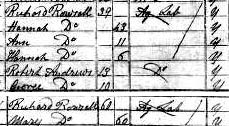 Richard Rowsell 39 Ag Lab Y
Hannah Do 43 Y
Ann Do 11 Y
Hannah Do 6 Y
Robert Andrews 13 Do Y
George Do 10 Y
Richard Rowsell 60 Ag Lab Y
Mary Do 60 Y